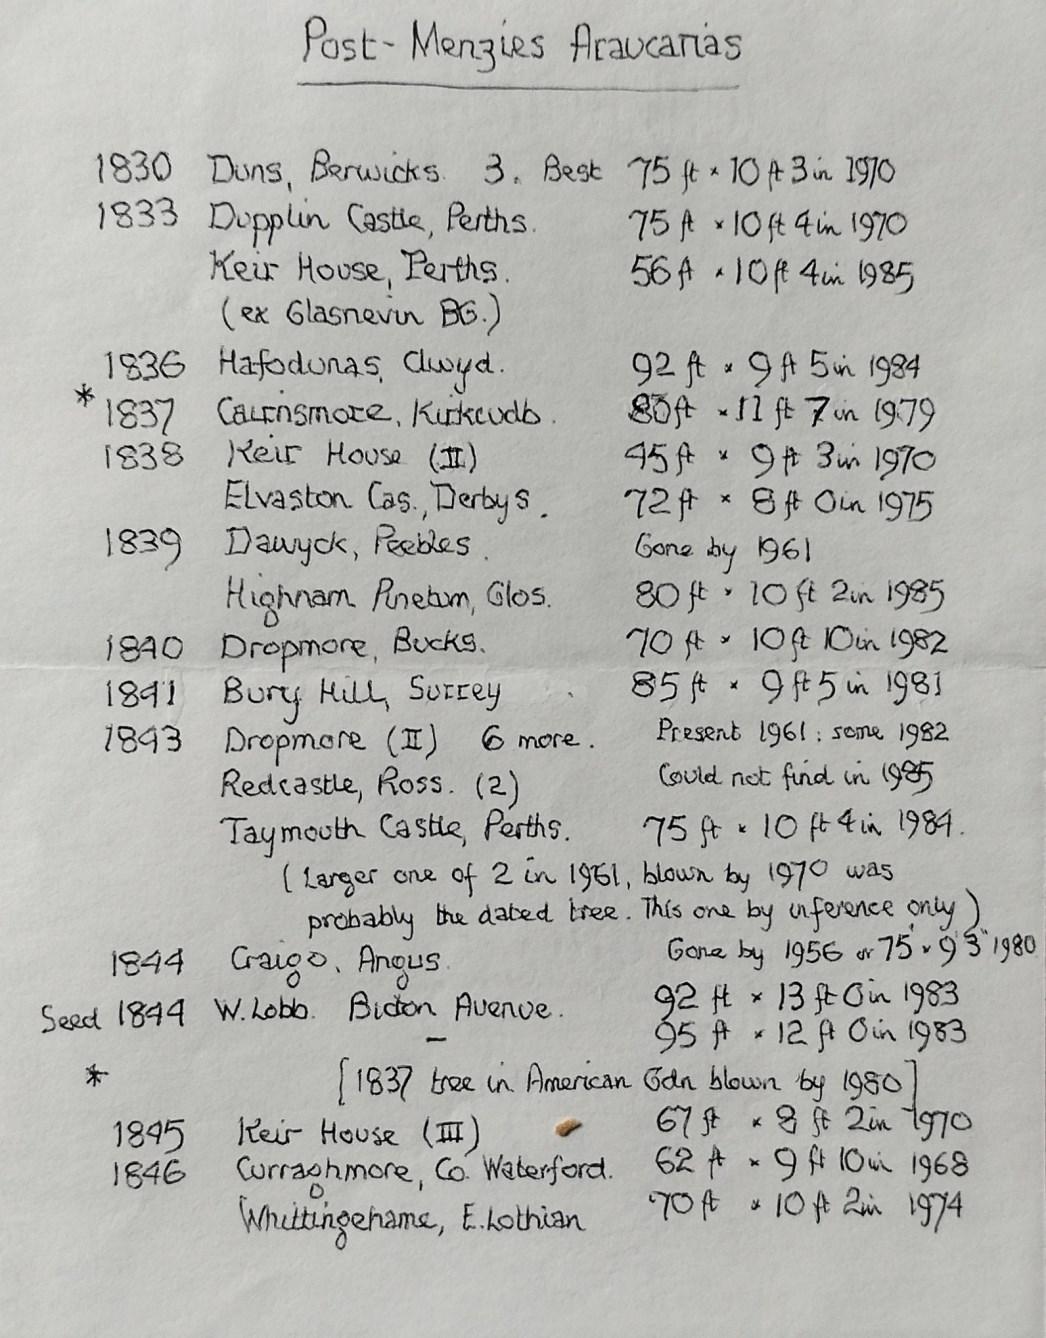 Post-Menzies Araucarias
1830 Duns, Berwicks. 3. Best 75 ft × 10 ft 3 in 1970
1833 Dupplin Castle, Perths. 75 ft × 10 ft 4 in 1970
Keir House, Perths. 56 ft × 10 ft 4 in 1985
(ex Glasnevin BG.)
1836 Hafodunas, Clwyd. 92 ft × 9 ft 5 in 1984
* 1837 Cairnsmore, Kirkcudb. 80 ft × 11 ft 7 in 1979
1838 Keir House (II) 45 ft × 9 ft 3 in 1970
Elvaston Cas., Derbys. 72 ft × 8 ft 0 in 1975
1839 Dawyck, Peebles. Gone by 1961
Highnam Pinetum, Glos. 80 ft × 10 ft 2 in 1985
1840 Dropmore, Bucks. 70 ft × 10 ft 10 in 1982
1841 Bury Hill, Surrey 85 ft × 9 ft 5 in 1981
1843 Dropmore (II) 6 more. Present 1961: some 1982
Redcastle, Ross. (2) Could not find in 1985
Taymouth Castle, Perths. 75 ft × 10 ft 4 in 1984.
(Larger one of 2 in 1961, blown by 1970 was
probably the dated tree. This one by inference only)
1844 Craigo, Angus. Gone by 1956 or 75' × 9'3" 1980
Seed 1844 W. Lobb. Bicton Avenue. 92 ft × 13 ft 0 in 1983
95 ft × 12 ft 0 in 1983
* [1837 tree in American Gdn blown by 1980]
1845 Keir House (III) 67 ft × 8 ft 2 in 1970
1846 Curraghmore, Co. Waterford. 62 ft × 9 ft 10 in 1968
Whittingehame, E. Lothian 70 ft × 10 ft 2 in 1974